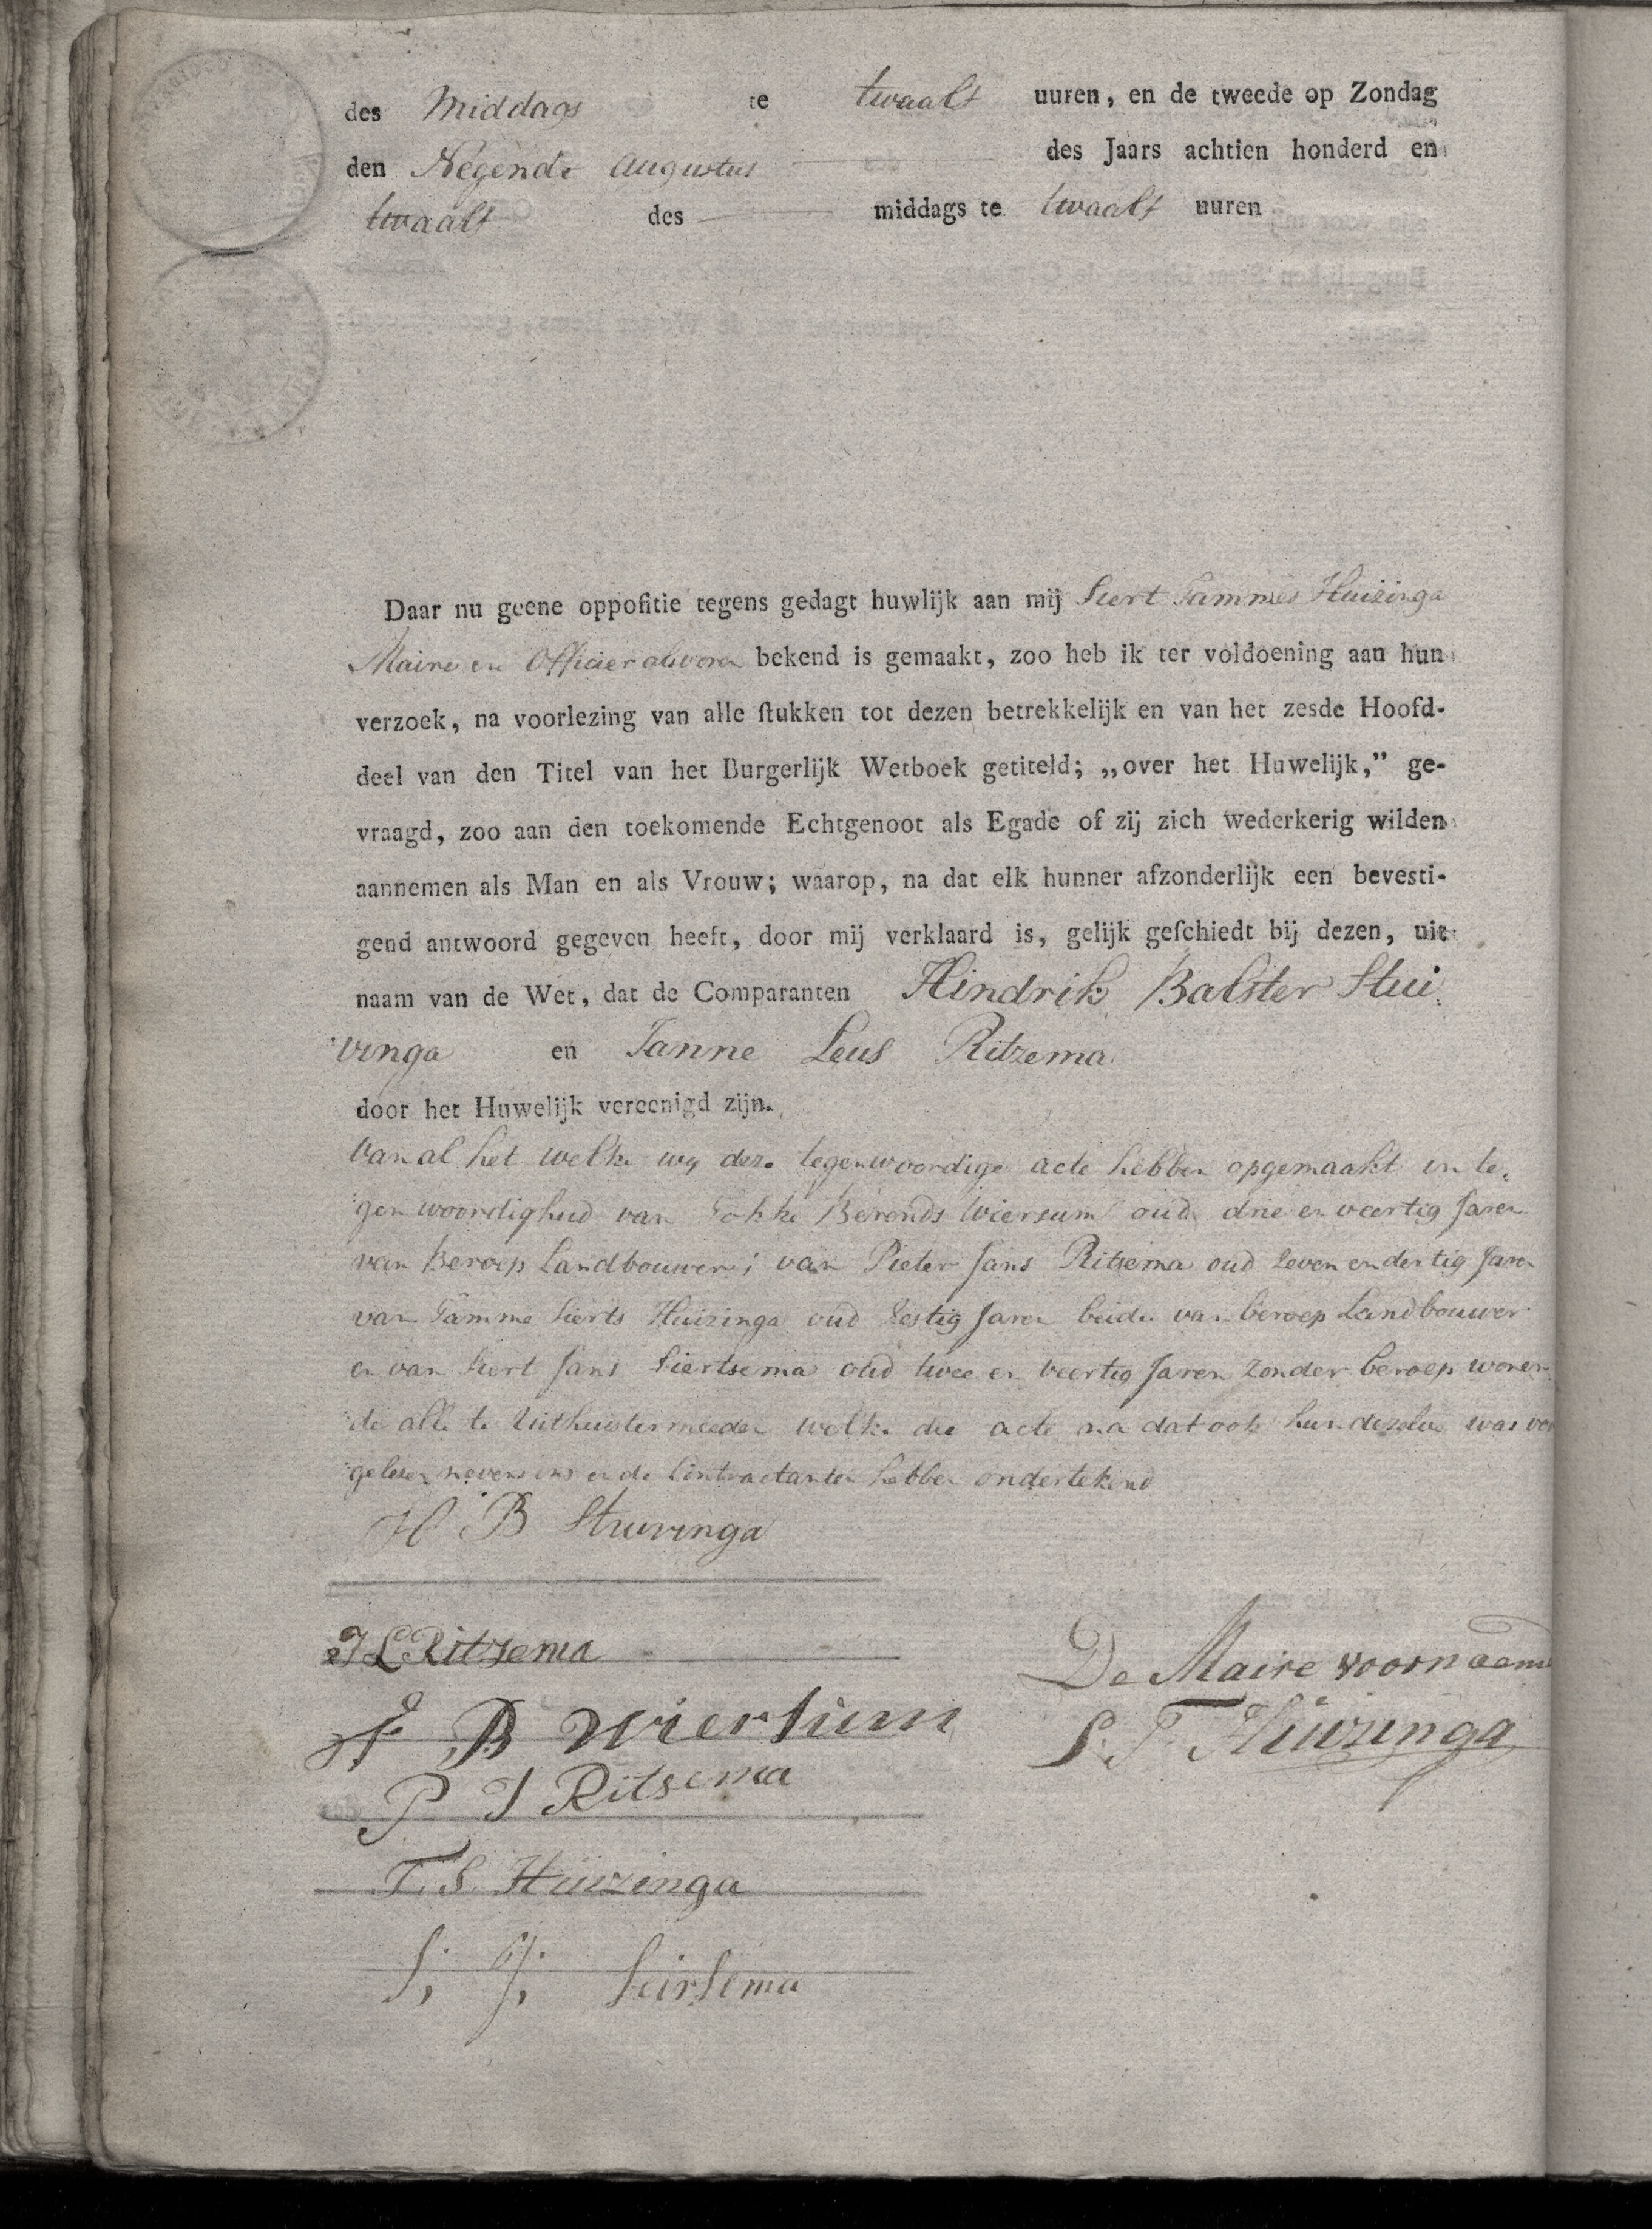 des Middags te twaalf uuren, en de tweede op Zondag
den Negende Augustus des Jaars achtien honderd en
twaalf des middags te twaalf uuren
Daar nu geene oppoſitie tegens gedagt huwlijk aan mij Siert Tammes Huizinga
Maire en Officier alvoren bekend is gemaakt, zoo heb ik ter voldoening aan hun
verzoek, na voorlezing van alle ſtukken tot dezen betrekkelijk en van het zesde Hoofd-
deel van den Titel van het Burgerlijk Wetboek getiteld; „over het Huwelijk,” ge-
vraagd, zoo aan den toekomende Echtgenoot als Egade of zij zich wederkerig wilden
aannemen als Man en als Vrouw; waarop, na dat elk hunner afzonderlijk een bevesti-
gend antwoord gegeven heeft, door mij verklaard is, gelijk geſchiedt bij dezen, uit
naam van de Wet, dat de Comparanten Hindrik Balster Stui
vinga en Janne Leus Ritzema
door het Huwelijk vereenigd zijn.
Van al het welke wy deze tegenwoordige acte hebben opgemaakt in te,
gen woordigheid van Fokke Berends Wiersum oud drie en veertig Jaren
van Beroep Landbouwer; van Pieter Jans Ritsema oud zeven en dertig Jaren
van Tamme Sierts Huizinga oud Zestig Jaren beide van beroep Landbouwer
en van Siert Jans Siertsema oud twee en veertig Jaren zonder beroep wonen
de alle te Uithuistermeeden welke die acte na dat ook hun dezelve was voor
gelesen nevens ons en de Contractanten hebben ondertekend
H B Stuivinga
J L Ritzema
De Maire voornoemd
F B Wiersum
S. T. Huizinga
P J Ritsema
T. S. Huizinga
S. J. Seirsema